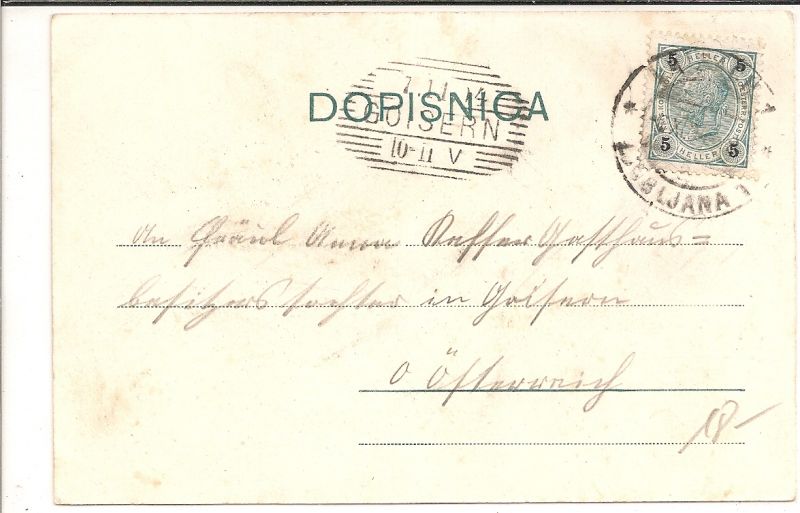 DOPISNICA
GOISERN
10-11 V
5 HELLER 5
5 HELLER 5
LJUBLJANA 1
An Fräul Anna Gasthaus=
besitzers tochter in Goisern
O Österreich
18-